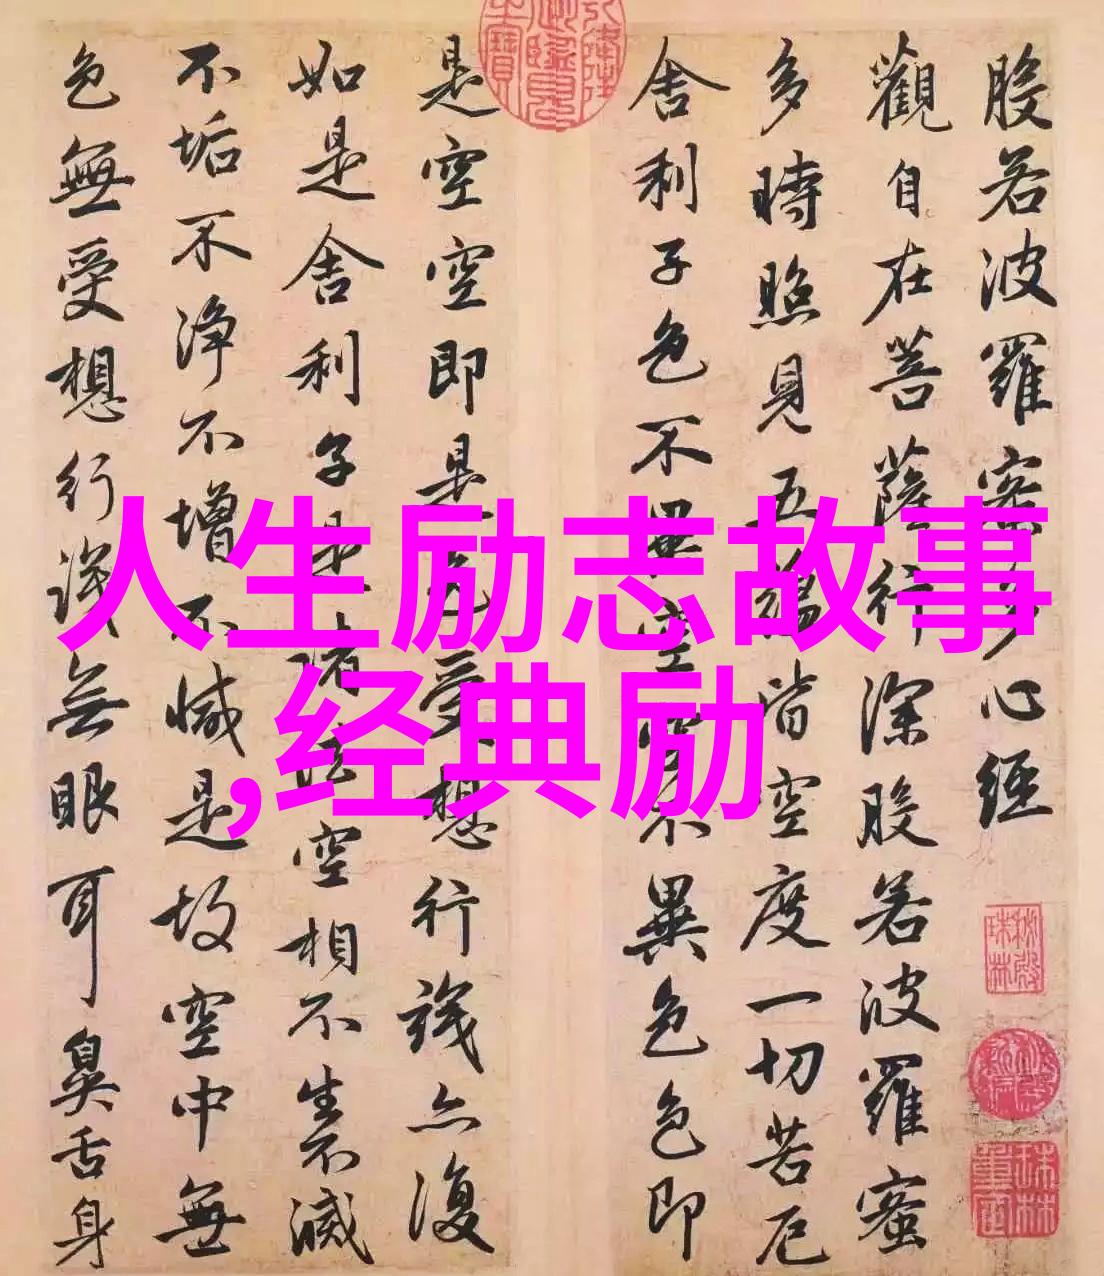 人生励志故事
,经典励
般若波羅蜜多心經
觀自在菩薩行深般若波羅蜜
多時照見五蘊皆空度一切苦厄
舍利子色不異空空不異色色即
是空空即是色受想行識亦復
如是舍利子是諸法空相不生不滅
不垢不淨不增不減是故空中無
色無受想行識無眼耳鼻舌身